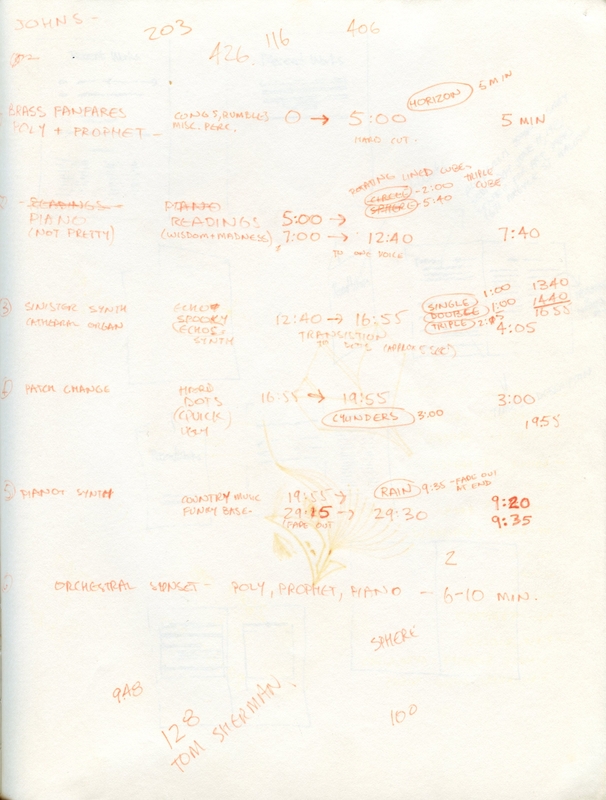 JOHNS -
203
116
406
426.
BRASS FANFARES
POLY + PROPHET -
MISC. PERC.
0 → 5:00
HARD CUT.
HORIZON 5 MIN
5 MIN
READINGS
PIANO
(NOT PRETTY)
PIANO
READINGS
(WISDOM + MADNESS)
5:00 →
7:00 → 12:40
TO ONE VOICE
ROTATING LINED CUBES
CIRCLE - 2:00 TRIPLE
SPHERE - 5:40 CUBE
7:40
3 SINISTER SYNTH
CATHEDRAL ORGAN
ECHO
SPOOKY
ECHOS
SYNTH
12:40 → 16:55
TRANSITION
TO DOTS (APPROX 5 SEC)
SINGLE 1:00 1340
DOUBLE 1:00 1440
TRIPLE 1655
4:05
PATCH CHANGE
HARD
DOTS
(QUICK)
UGLY
16:55 → 19:55
CYLINDERS 3:00
3:00
19:55
5 PIANO + SYNTH
COUNTRY MUSIC
FUNKY BASE -
19:55 →
29:15 → 29:30
(FADE OUT
RAIN 9:35 - FADE OUT
AT END
9:20
9:35
2
ORCHESTRAL SUNSET - POLY, PROPHET, PIANO - 6-10 MIN.
SPHERE
9A8
128
TOM SHERMAN.
100